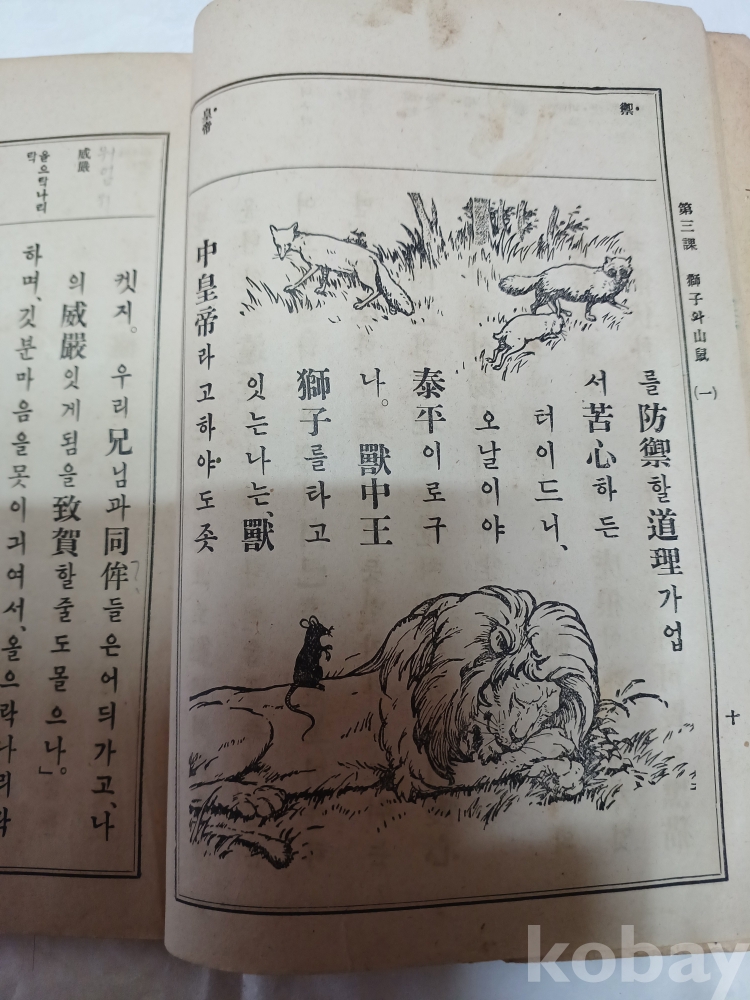 第三課 獅子와山鼠 (一)
十
禦
皇帝
를防禦할道理가업
서苦心하든
터이드니、
오날이야
泰平이로구
나。獸中王
獅子를타고
잇는나는、獸
中皇帝라고하야도좃
威嚴
올으락나리
락
켓지。우리兄님과同侔들은어듸가고、나
의威嚴잇게됨을致賀할줄도몰으나。」
하며、깃분마음을못이긔여서、올으락나리락
kobay